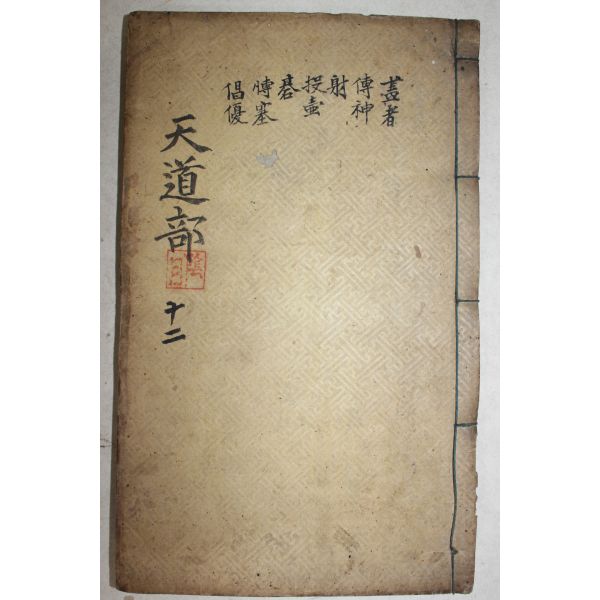 盖者
傳神
射
投壷
碁
愽塞
倡優
天道部
十二